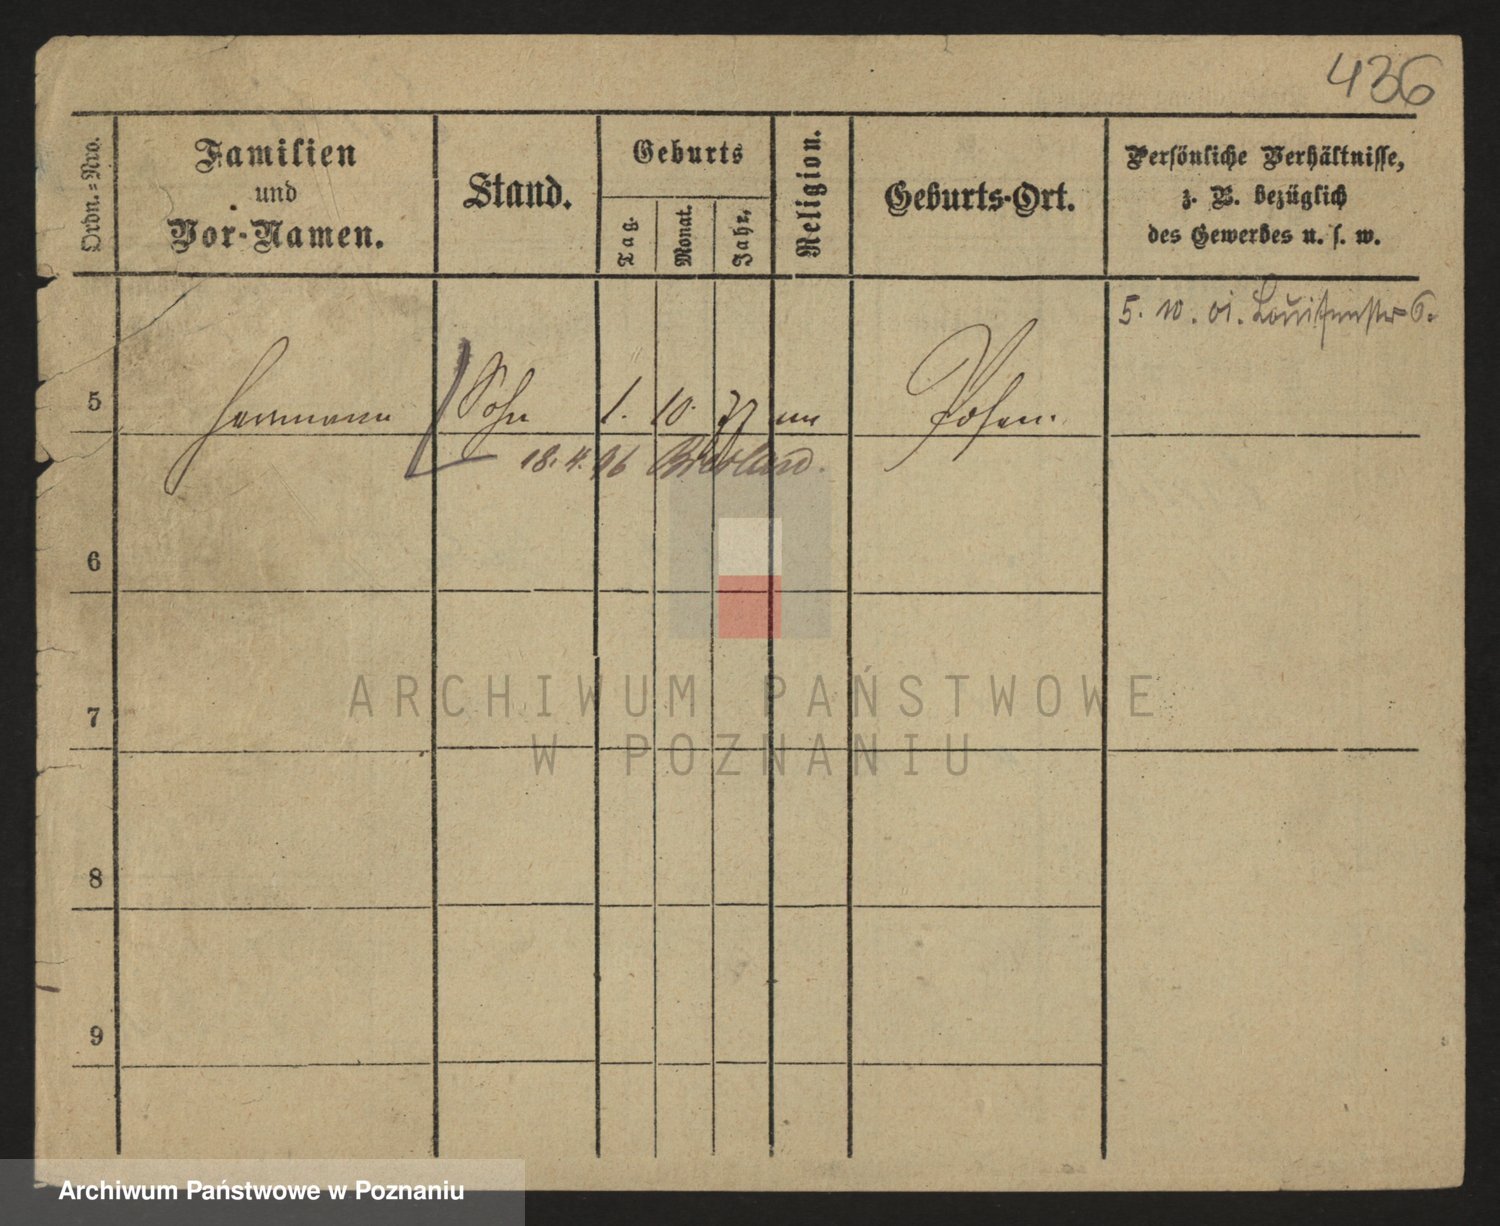 436
Ordn.=Nro.
Familien
und
Vor-Namen.
Stand.
Geburts
Tag.
Monat.
Jahr.
Religion.
Geburts-Ort.
Persönliche Verhältnisse,
z. B. bezüglich
des Gewerbes u. s. w.
5. 10. 01. Louisenstr 6.
5 Herrmann Sohn 1. 10. 77 Posen.
18. 4. 96
6
7
8
9
ARCHIWUM PAŃSTWOWE
W POZNANIU
Archiwum Państwowe w Poznaniu